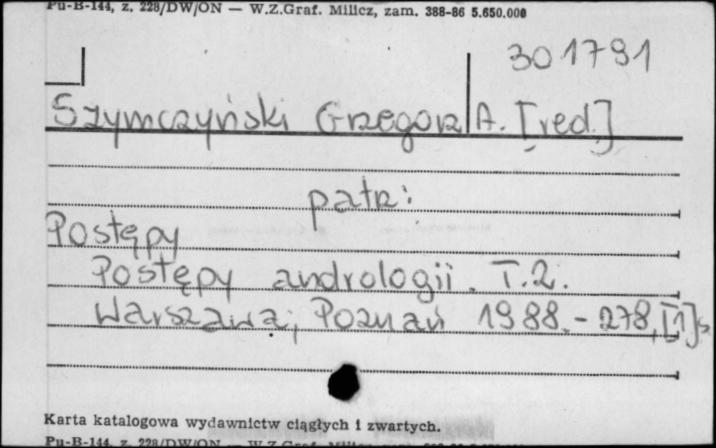 Pu-B-144, z. 228/DW/ON — W.Z.Graf. Milicz, zam. 388-86 5.650.000
301791
Szymczyński Grzegorz A. [red.]
patrz:
Postępy
Postępy andrologii. T.2.
Warszawa; Poznań 1988. - 278,[1]s.
Karta katalogowa wydawnictw ciągłych i zwartych.
Pu-B-144, z. 228/DW/ON — W.Z.Graf. Milicz, zam.